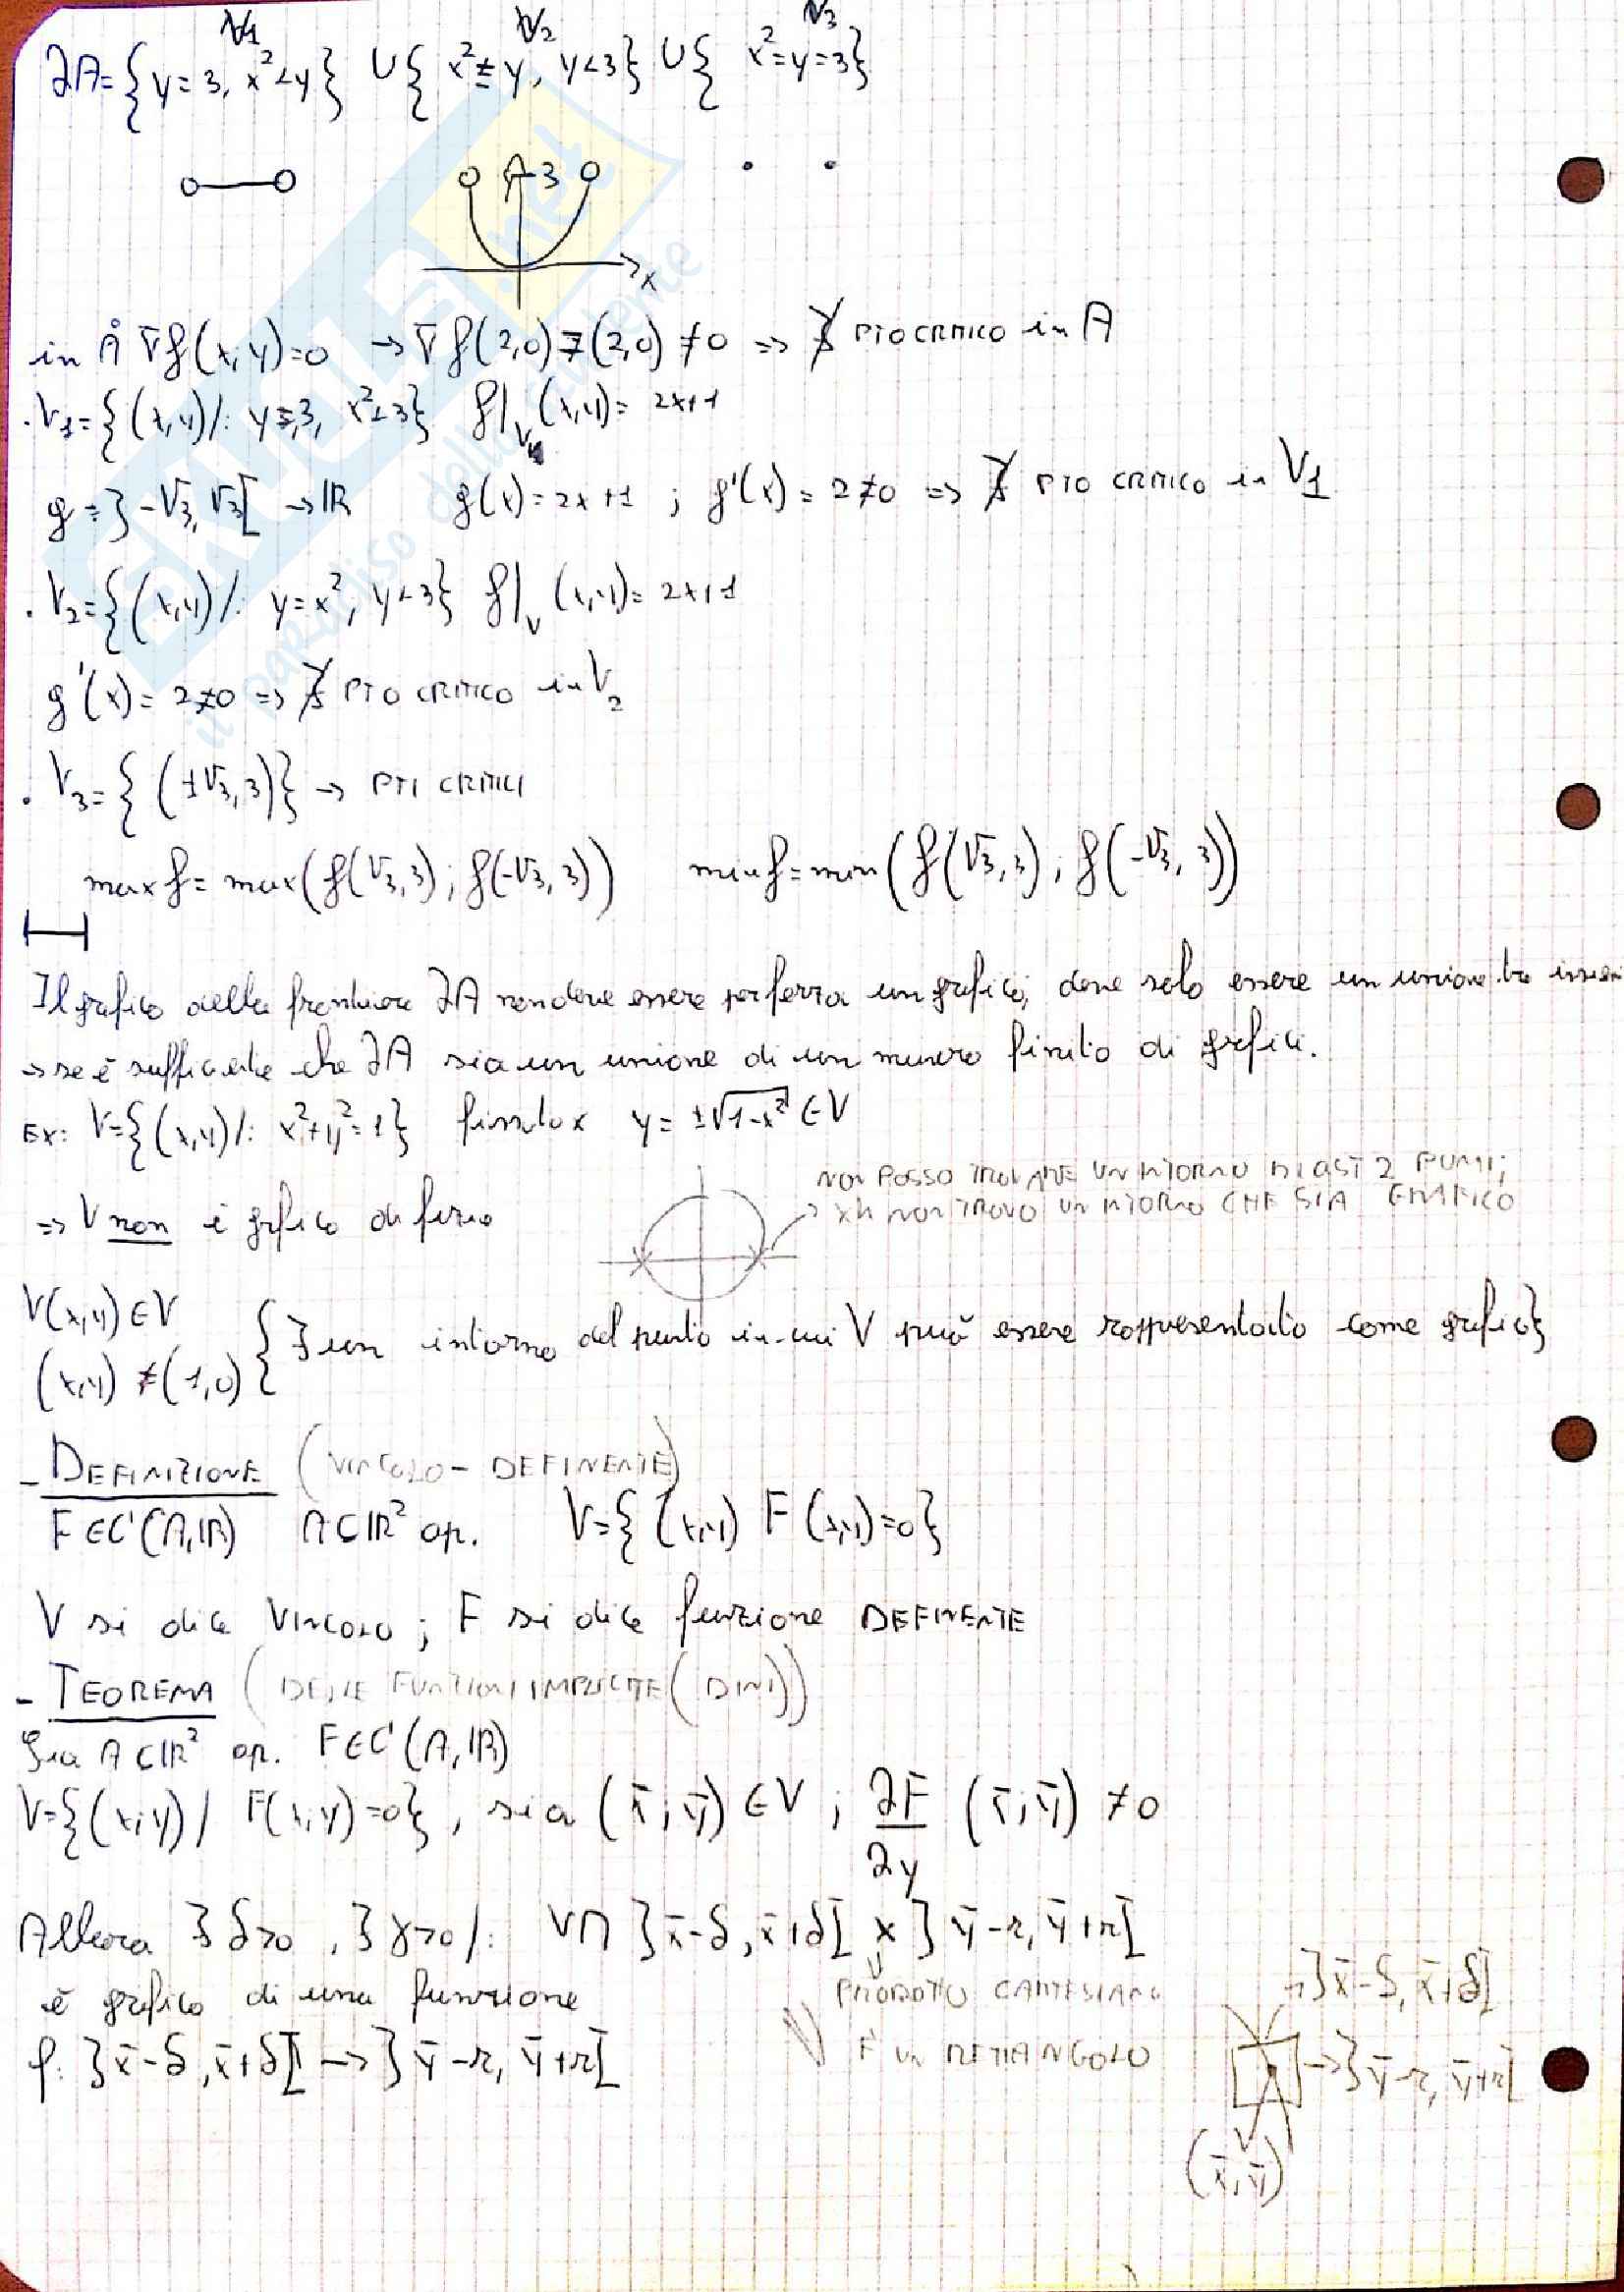 V1 V2 V3
∂A = { y = 3, x² < y } ∪ { x² = y, y < 3 } ∪ { x² = y = 3 }
3
x
in Å ∇f(x,y)=0 → ∇f(2,0) ≠ (2,0) ≠ 0 ⇒ ∄ PTO CRITICO in A
. V1 = {(x,y) /: y = 3, x² < 3} f|V1 (x,y) = 2x+1
g = ]-√3, √3[ → ℝ g(x) = 2x+1 ; g'(x) = 2 ≠ 0 ⇒ ∄ PTO CRITICO in V1
. V2 = {(x,y) /: y = x², y < 3} f|V (x,y) = 2x+1
g'(x) = 2 ≠ 0 ⇒ ∄ PTO CRITICO in V2
. V3 = {(±√3, 3)} → PTI CRITICI
max f = max (f(√3,3) ; f(-√3,3)) min f = min (f(√3,3) ; f(-√3,3))
Il grafico della frontiera ∂A non deve essere per forza un grafico, deve solo essere un unione tra insiemi
→ se è sufficiente che ∂A sia un unione di un numero finito di grafici.
Ex: V = {(x,y) /: x²+y² = 1} fissato x y = ±√1-x² ∈ V
NON POSSO TROVARE UN INTORNO DI QSTI 2 PUNTI;
⇒ V non è grafico di funzio
xk NON TROVO UN INTORNO CHE SIA GRAFICO
∀(x,y) ∈ V
(x,y) ≠ (1,0) { ∃ un intorno del punto in cui V può essere rappresentato come grafico}
- DEFINIZIONE (VINCOLO - DEFINENTE)
F ∈ C¹(A,ℝ) A ⊂ ℝ² ap. V = {(x,y) F(x,y) = 0}
V si dice VINCOLO ; F si dice funzione DEFINENTE
- TEOREMA (DELLE FUNZIONI IMPLICITE (DINI))
Sia A ⊂ ℝ² ap. F ∈ C¹(A,ℝ)
V = {(x,y) / F(x,y) = 0}, sia (x̄,ȳ) ∈ V ; ∂F/∂y (x̄,ȳ) ≠ 0
Allora ∃ δ>0, ∃ r>0 /: V ∩ ]x̄-δ, x̄+δ[ × ]ȳ-r, ȳ+r[
è grafico di una funzione
PRODOTTO CARTESIANO
È UN RETTANGOLO
f: ]x̄-δ, x̄+δ[ → ]ȳ-r, ȳ+r[
→ ]x̄-δ, x̄+δ[
→ ]ȳ-r, ȳ+r[
(x̄,ȳ)
SKUOLA.net
il paradiso dello studente